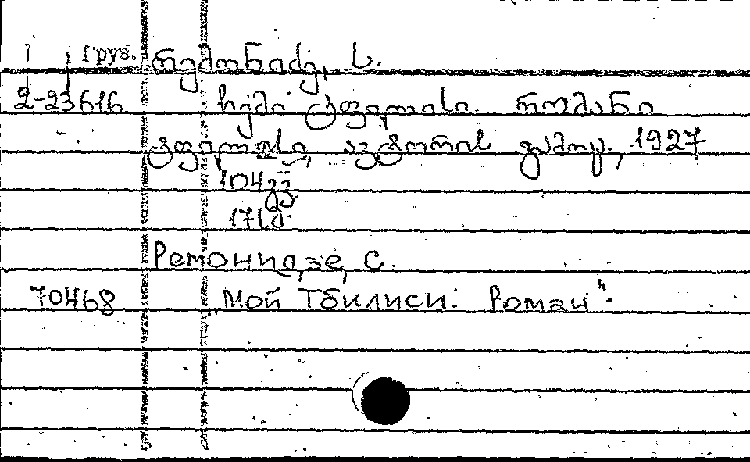 1 груз. რემონიძე, ს.
2-23616 ჩემი ტფილისი. რომანი
ტფილისი, ავტორის გამოც., 1927
104 გვ.
17
Ремонидзе, С.
70468 Мой Тбилиси. Роман.